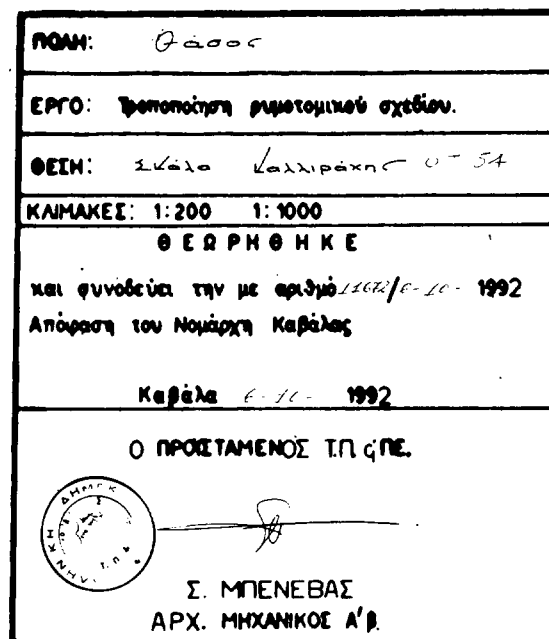 ΠΟΛΗ: Θάσος
ΕΡΓΟ: Τροποποίηση ρυμοτομικού σχεδίου.
ΘΕΣΗ: Σκάλα Καλλιράχης 54
ΚΛΙΜΑΚΕΣ: 1:200 1:1000
ΘΕΩΡΗΘΗΚΕ
και συνοδεύει την με αριθμό 11672/6-10- 1992
Απόφαση του Νομάρχη Καβάλας
Καβάλα 6-10- 1992
Ο ΠΡΟΙΣΤΑΜΕΝΟΣ Τ.Π. ΠΕ.
Σ. ΜΠΕΝΕΒΑΣ
ΑΡΧ. ΜΗΧΑΝΙΚΟΣ Α'β.